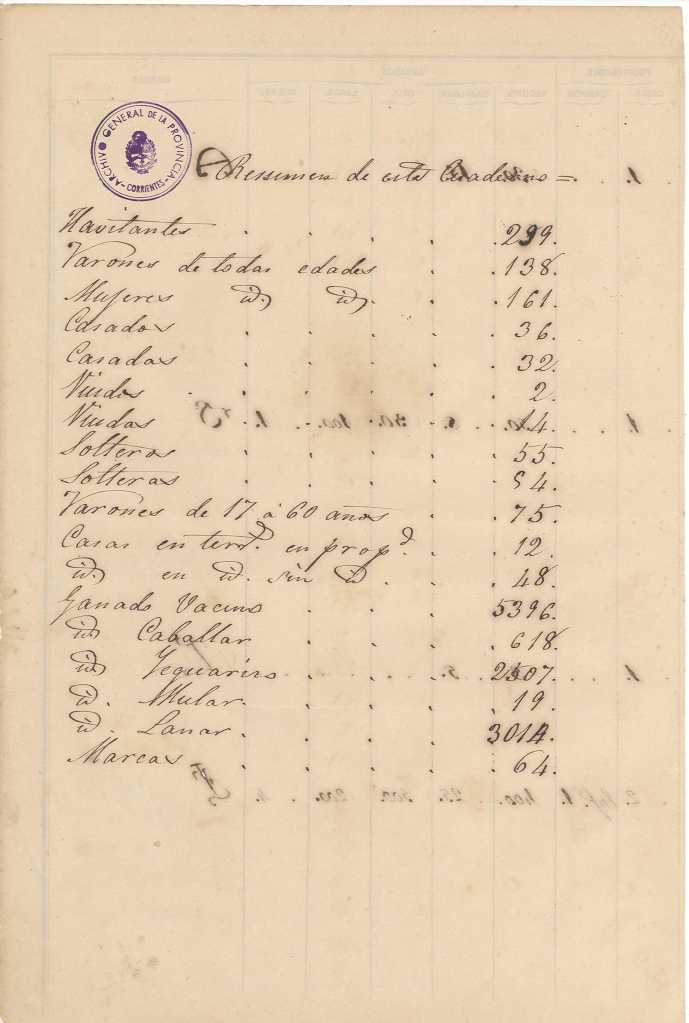 ARCHIVO GENERAL DE LA PROVINCIA
- CORRIENTES -
Ressumen de este Cuaderno =.
Havitantes . . . . . 299.
Varones de todas edades . . 138.
Mujeres id. id. . . 161.
Casados . . . . . 36.
Casadas . . . . . 32.
Viudos . . . . . 2.
Viudas . . . . . 14.
Solteros . . . . . 55.
Solteras . . . . . 54.
Varones de 17 á 60 años . . 75.
Casas en terrº. en propd. . . 12.
id. en id. sin id . . . 48.
Ganado Vacuno . . . 5396.
id Caballar . . . . 618.
id Yeguarizo . . . 2507.
id. Mular. . . . . 19.
id. Lanar. . . . . 3014.
Marcas . . . . . 64.